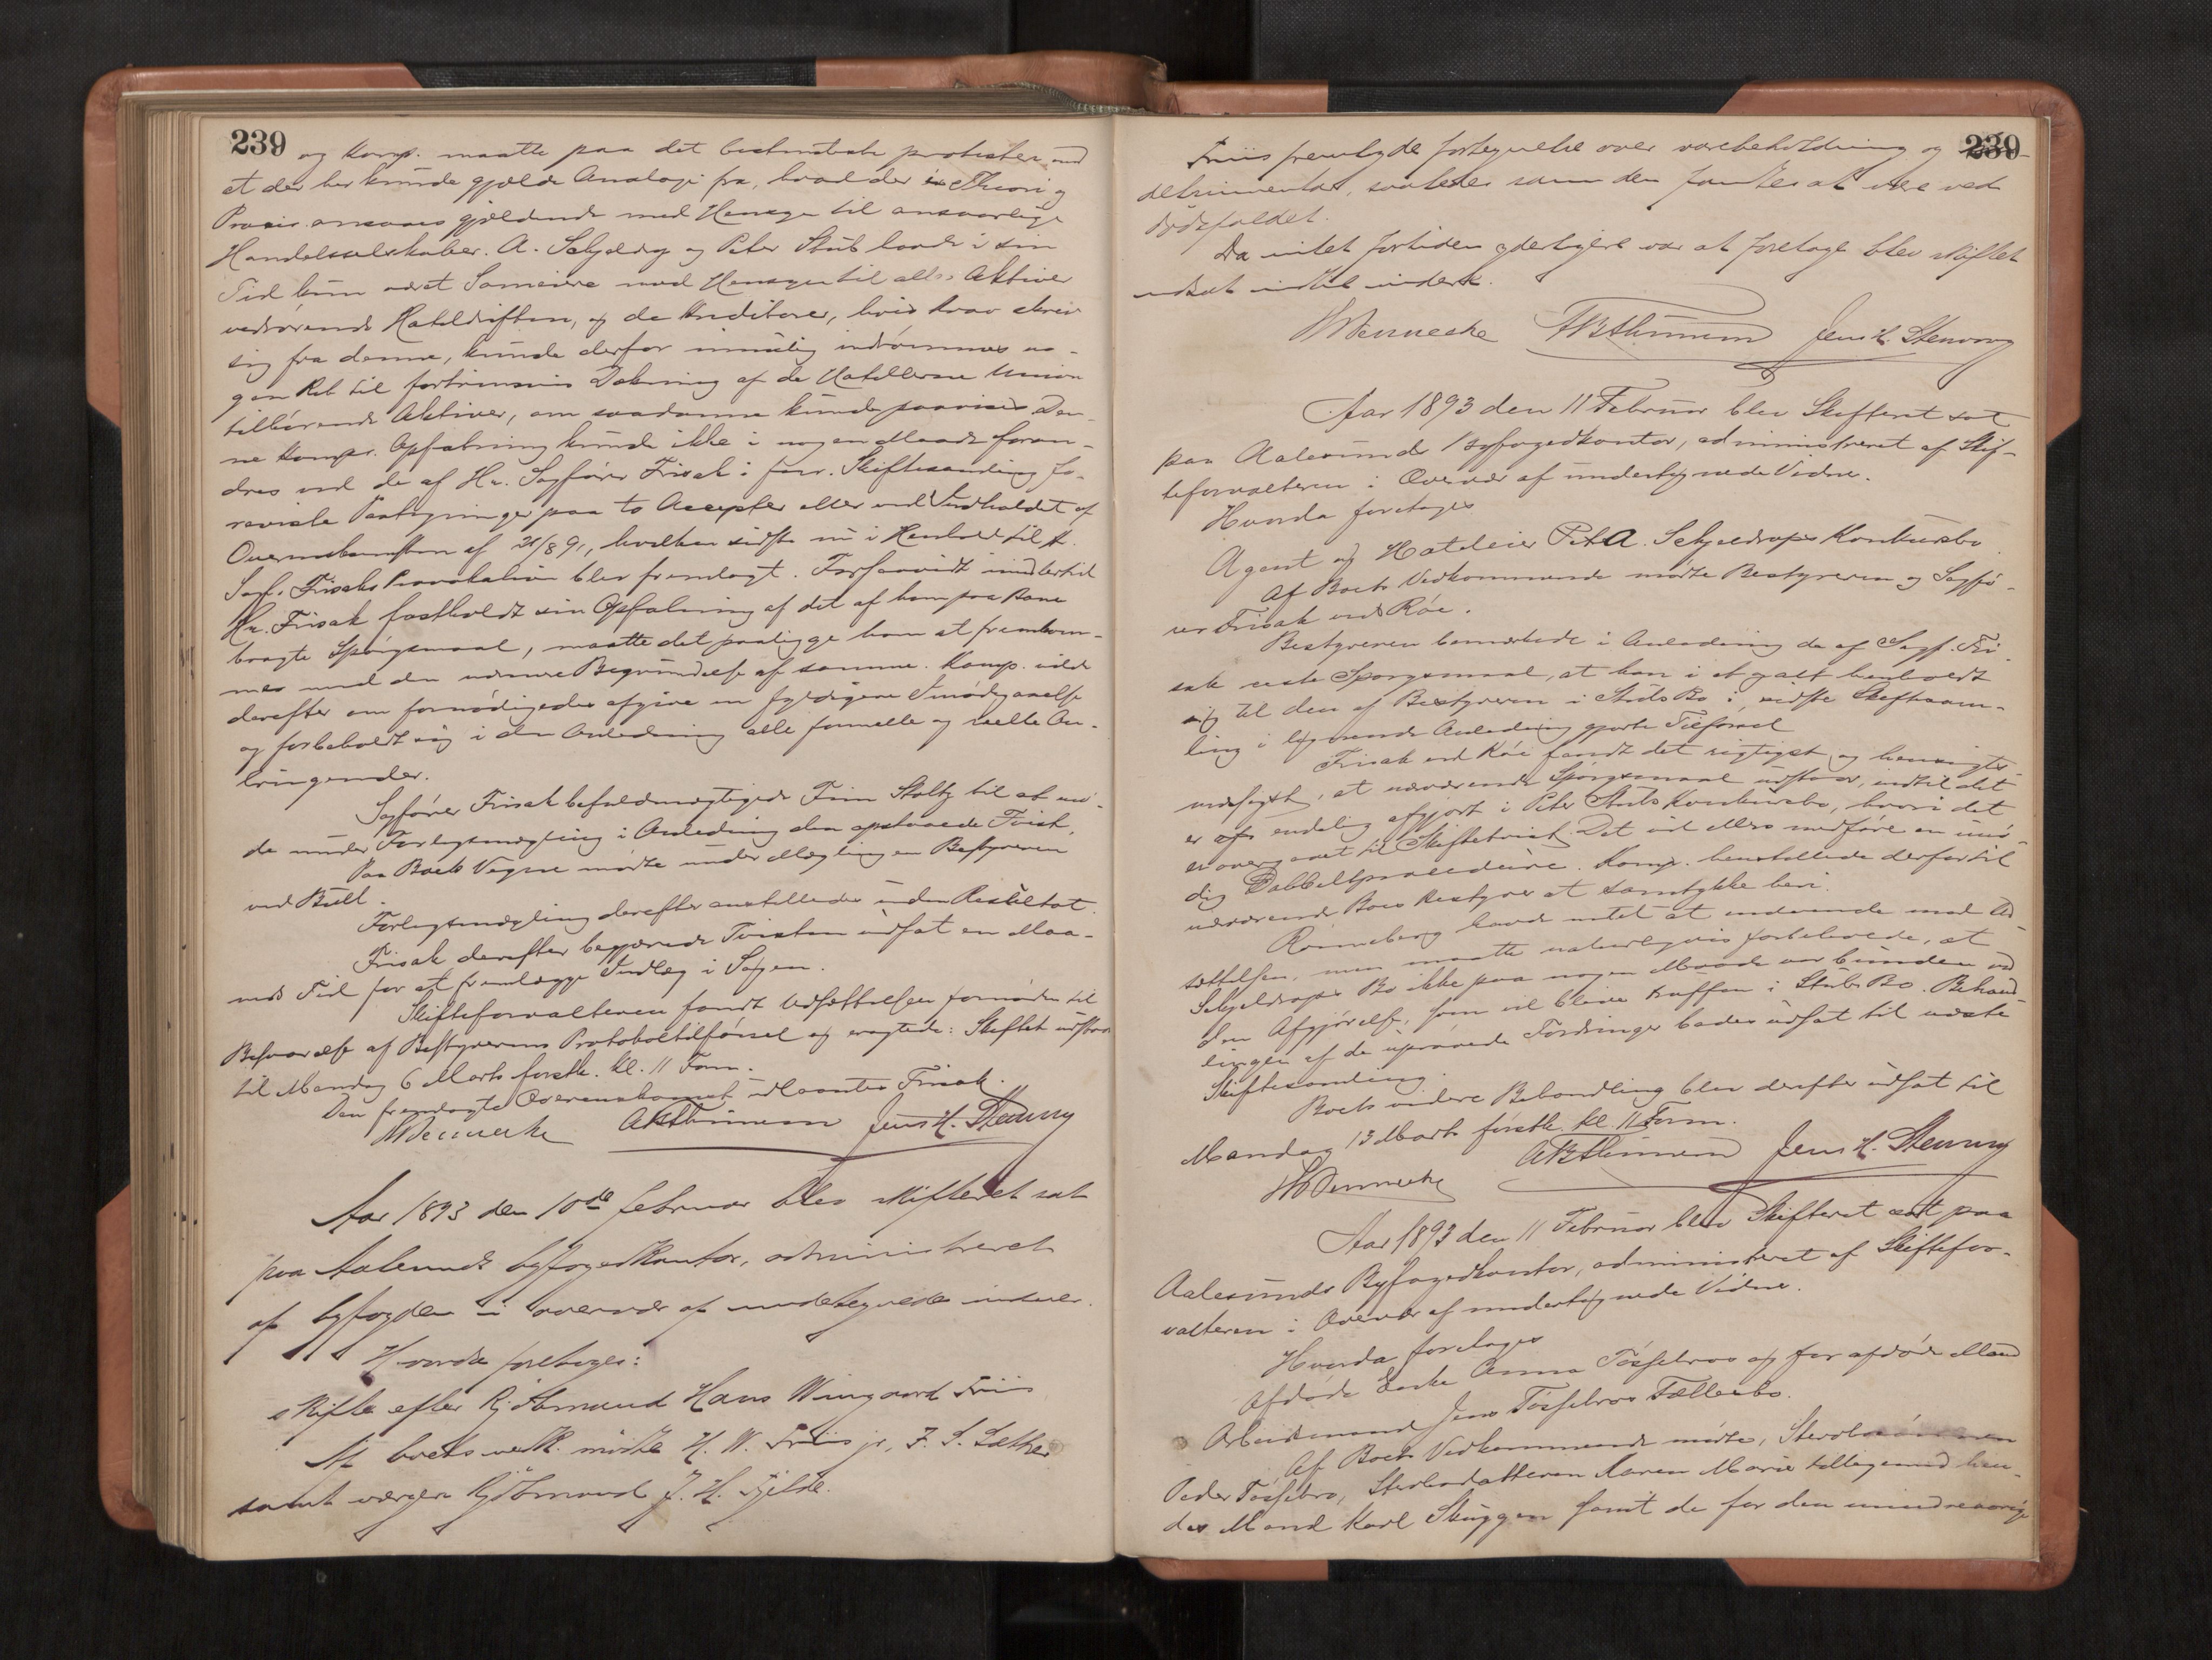 239
og Komp. maatte paa det bestemteste protestere mod
at der her kunde gjælde Analogi fra, hvad der i Theori og
Praxis ansaaes gjældende med Hensyn til ansvarlige
Handelsselskaber. A. Schjeldrop og Peter Stub havde i sin
Tid kun været Sameiere med Hensyn til alle Aktiver
vedrørende Hoteldriften, og de Kreditorer, hvis Krav skrev
sig fra denne, kunde derfor umulig indrømmes no-
gen Ret til fortrinsvis Dækning af de Hotellerne Union
tilhørende Aktiver, om saadanne kunde paavises. Den-
ne Komps. Opfatning kunde ikke i nogen Maade foran-
dres ved de af Hr. Sagfører Frisak i forr. Skiftesamling fo-
reviste Paategninger paa to Accepter eller ved Indholdet af
Overenskomsten af 21/8 91, hvilken sidste nu i Henhold til
Sagf. Frisaks Provokation blev fremlagt. Forsaavidt imidlertid
Hr. Frisak fastholdt sin Opfatning af det af ham paa Bane
bragte Spørgsmaal, maatte det paaligge ham at fremkom-
me med den nærmere Begrundelse af samme. Komp. vilde
derefter om fornødiges afgive en fyldigere Imødegaaelse
og forbeholdt sig i den Anledning alle formelle og reelle An-
bringender.
Sagfører Frisak befuldmægtigede Finn Stoltz til at mø-
de under Forligsmægling i Anledning den opstaaede Tvist.
Paa Boets Vegne mødte under Mæglingen Bestyreren
ved Bull.
Forligsmægling derefter anstilledes uden Resultat.
Frisak derefter begjærede Tvisten udsat en Maa-
neds Tid for at fremlægge Indlæg i Sagen.
Skifteforvalteren fandt Udsættelsen fornøden til
Besvarelse af Bestyrerens Protokoltilførsel og eragtede: Skiftet udstaar
til Mandag 6 Marts førstk. kl. 11 Form.
Den fremlagte Overenskomst Frisak.
HWennecke ABThinnem Jens H. Stenvig
Aar 1893 den 10de februar blev skifteret sat
paa Aalesunds byfogedkontor, administreret
af byfogden i overvær af undertegnede vidner.
Hvorda foretoges:
skifte efter Kjøbmand Hans Wingaard Friis
Af boets vedk. mødte H. W. Friis jr, F. S. Sæther
samt værgen Kjøbmand J. H. Fjelde.
239
Friis fremlagde fortegnelse over varebeholdning og
debrimentar, saaledes som den fandtes at være ved
dødsfaldet.
Da intet fortiden yderligere var at foretage blev skiftet
udsat indtil videre.
HWennecke ABThinnem Jens H. Stenvig
Aar 1893 den 11 Februar blev Skifteret sat
paa Aalesunds Byfogedkontor, administreret af Skif-
teforvalteren i Overvær af undertegnede Vidne.
Hvorda foretoges
Agent og Hoteleier Pet A. Schjeldrops Konkursbo
Af Boets Vedkommende mødte Bestyreren og Sagfø-
rer Frisak ved Røe.
Bestyreren bemærkede i Anledning de af Sagf. Fri
sak reiste Spørgsmaal, at han i et og alt henholdt
sig til den af Bestyreren i Stubs Bo i sidste Skiftesam-
ling i lignende Anledning gjorte Tilførsel
Frisak ved Røe fandt det rigtigst og hensigts-
mæssigst, at nærværende Spørgsmaal udstaar, indtil det
er endelig afgjort i Peter Stubs Konkursbo, hvori det
er overgaaet til Skiftetvist. Det vil ellers medføre en unø-
dig Dobbeltprocedure. Komp. henstillede derfor til
nærværende Boes Bestyrer at samtykke heri.
Rønneberg havde intet at indvende mod Ud-
sættelsen, men maatte naturligvis forbeholde, at
Schjeldrops Bo ikke paa nogen Maade var bunden ved
den Afgjørelse, som vil blive truffen i Stubs Bo. Behand-
lingen af de uprøvede Fordringer bades udsat til næste
Skiftesamling.
Boets videre Behandling blev derefter udsat til
Mandag 13 Marts førstk. kl. 11 Form.
HWennecke ABThinnem Jens H. Stenvig
Aar 1893 den 11 Februar blev Skifteret sat paa
Aalesunds Byfogedkontor, administreret af Skiftefor-
valteren i Overvær af undertegnede Vidne.
Hvorda foretoges
Afdøde Enke Anna Tøssebros og før afdøde Mand
Arbeidsmand Jens Tøssebros Fællesbo.
Af Boets Vedkommende mødte, Stervbosønnen
Peder Tøssebro, Stervbodatteren Karen Marie tilligemed hen-
des Mand Karl Skuggen samt de for den mindreaarige